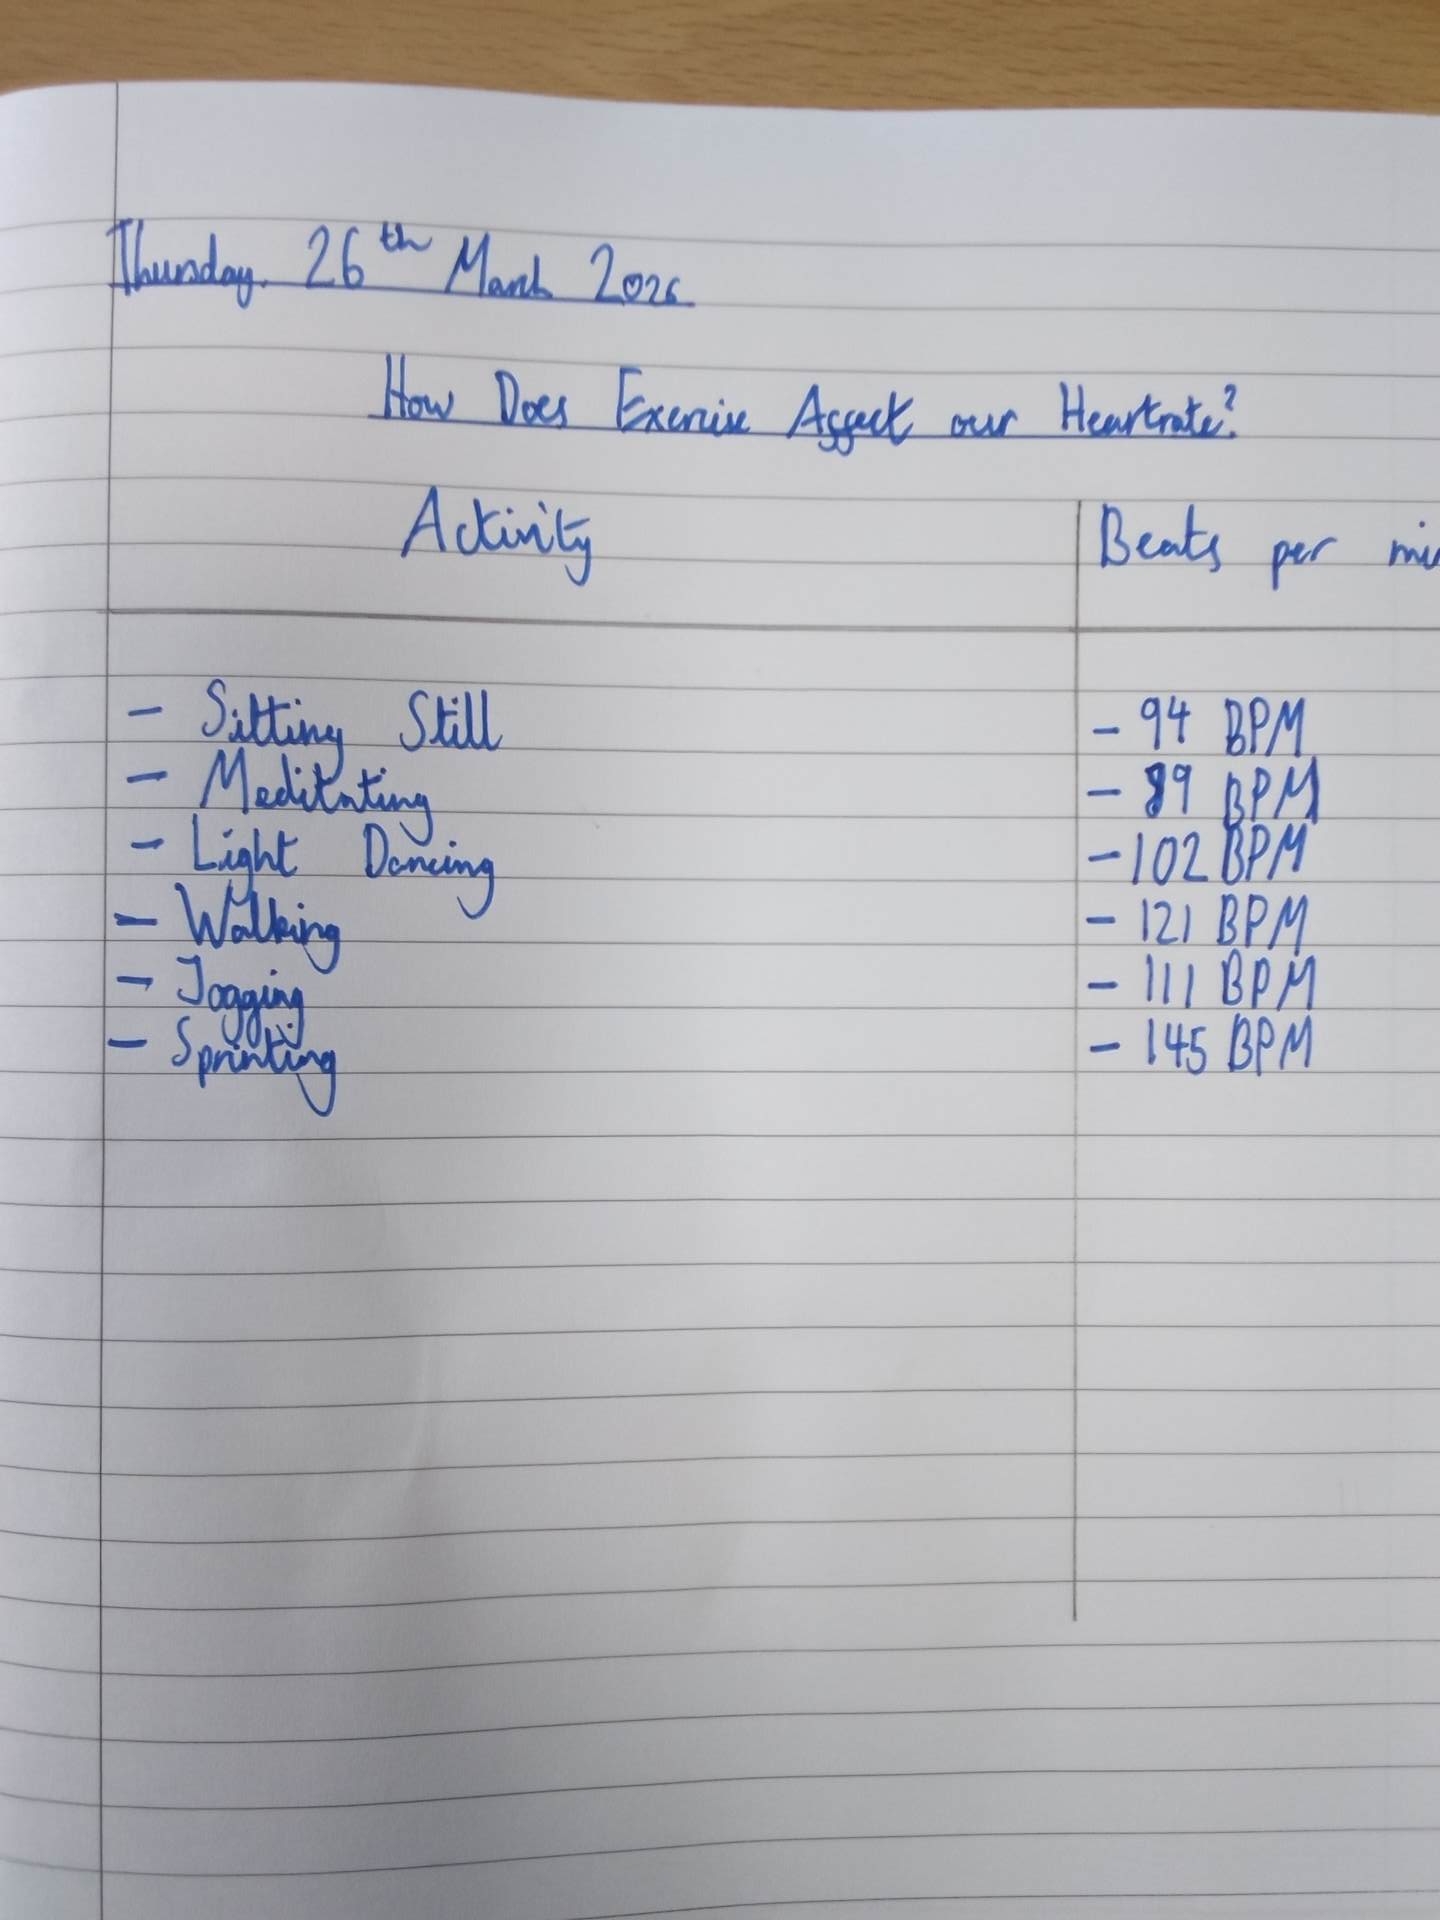 Thursday. 26th March 2026
How Does Exercise Affect our Heartrate?
Activity Beats per mi
- Sitting Still - 94 BPM
- Meditating - 89 BPM
- Light Dancing - 102 BPM
- Walking - 121 BPM
- Jogging - 111 BPM
- Sprinting - 145 BPM